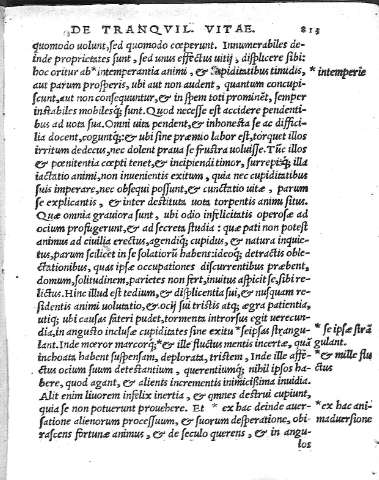 DE TRANQVIL. VITAE. 813
quomodo uolunt, sed quomodo cœperunt. Innumerabiles de-
inde proprietates sunt, sed unus effectus uitij, displicere sibi:
hoc oritur ab* intemperantia animi, & cupiditatibus timidis, * intemperie
aut parum prosperis, ubi aut non audent, quantum concupi-
scunt, aut non consequuntur, & in spem toti prominēt, semper
instabiles mobilesq́; sunt. Quod necesse est accidere pendenti-
bus ad uota sua. Omni uita pendent, & inhonesta se ac diffici-
lia docent, coguntq́; & ubi sine præmio labor est, torquet illos
irritum dedecus, nec dolent praua se frustra uoluisse. Tūc illos
& pœnitentia cœpti tenet, & incipiendi timor, surrepitq́; illa
iactatio animi, non inuenientis exitum, quia nec cupiditatibus
suis imperare, nec obsequi possunt, & cunctatio uitæ, parum
se explicantis, & inter destituta uota torpentis animi situs.
Quæ omnia grauiora sunt, ubi odio infelicitatis operosæ ad
ocium profugerunt, & ad secreta studia: quæ pati non potest
animus ad ciuilia erectus, agendiq́; cupidus, & natura inquie-
tus, parum scilicet in se solatiorū habens: ideoq́; detractis oble-
ctationibus, quas ipsæ occupationes discurrentibus præbent,
domum, solitudinem, parietes non fert, inuitus aspicit se, sibi re-
lictus. Hinc illud est tedium, & displicentia sui, & nusquam re-
sidentis animi uolutatio, & ocij sui tristis atq; ægra patientia,
utiq; ubi causas fateri pudet, tormenta introrsus egit uerecun-
dia, in angusto inclusæ cupiditates sine exitu *seipsas strangu- * se ipsæ strā
lant. Inde mœror marcorq́;*& ille fluctus mentis incertæ, quā gulant.
inchoata habent suspensam, deplorata, tristem, Inde ille affe- *& mille flu
ctus ocium suum detestantium, querentiumq́; nihil ipsos ha- ctus
bere, quod agant, & alienis incrementis inimicissima inuidia.
Alit enim liuorem infelix inertia, & omnes destrui cupiunt,
quia se non potuerunt prouehere. Et * ex hac deinde auer- *ex hac ani-
satione alienorum processuum, & suorum desperatione, ob- maduersione
rascens fortunæ animus, & de seculo querens, & in angu-
los